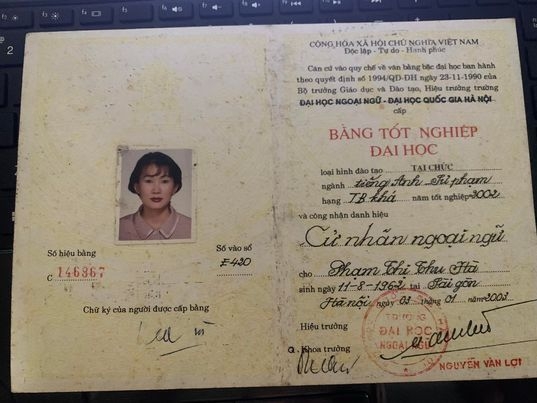 CỘNG HÒA XÃ HỘI CHỦ NGHĨA VIỆT NAM
Độc lập - Tự do - Hạnh phúc
Căn cứ vào quy chế về văn bằng bậc đại học ban hành
theo quyết định số 1994/QD-ĐH ngày 23-11-1990 của
Bộ trưởng Giáo dục và Đào tạo, Hiệu trưởng trường
ĐẠI HỌC NGOẠI NGỮ - ĐẠI HỌC QUỐC GIA HÀ NỘI
cấp
BẰNG TỐT NGHIỆP
ĐẠI HỌC
loại hình đào tạo TẠI CHỨC
ngành tiếng Anh Sư phạm
hạng TB khá năm tốt nghiệp 2002
và công nhận danh hiệu
Cử nhân ngoại ngữ
cho Phạm Thị Thu Hà
sinh ngày 11-8-1962 tại Sài gòn
Hà nội, ngày 03 tháng 01 năm 2003
Hiệu trưởng
TRƯỜNG
ĐẠI HỌC
NGOẠI NGỮ
Q. Khoa trưởng
NGUYỄN VĂN LỢI
Số hiệu bằng
C 146867
Số vào sổ
E-430
Chữ ký của người được cấp bằng